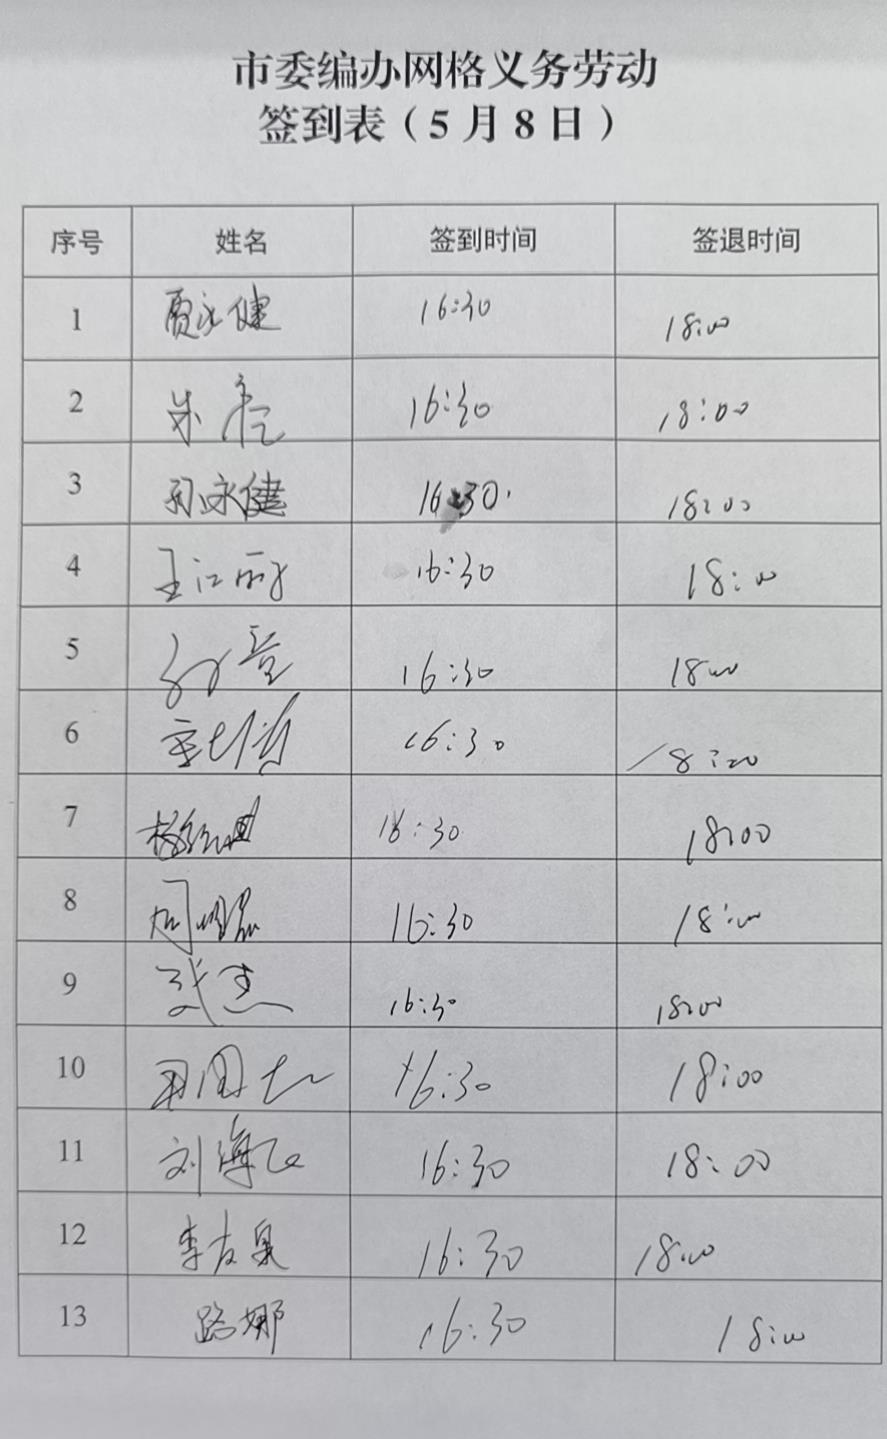 市委编办网格义务劳动
签到表（5月8日）
序号 姓名 签到时间 签退时间
1 贾永健 16:30 18:00
2 朱 16:30 18:00
3 孙永健 16:30 18:00
4 王江丽 16:30 18:00
5 16:30 18:00
6 16:30 18:00
7 杨 16:30 18:00
8 周 16:30 18:00
9 张杰 16:30 18:00
10 16:30 18:00
11 刘海飞 16:30 18:00
12 李友泉 16:30 18:00
13 路娜 16:30 18:00